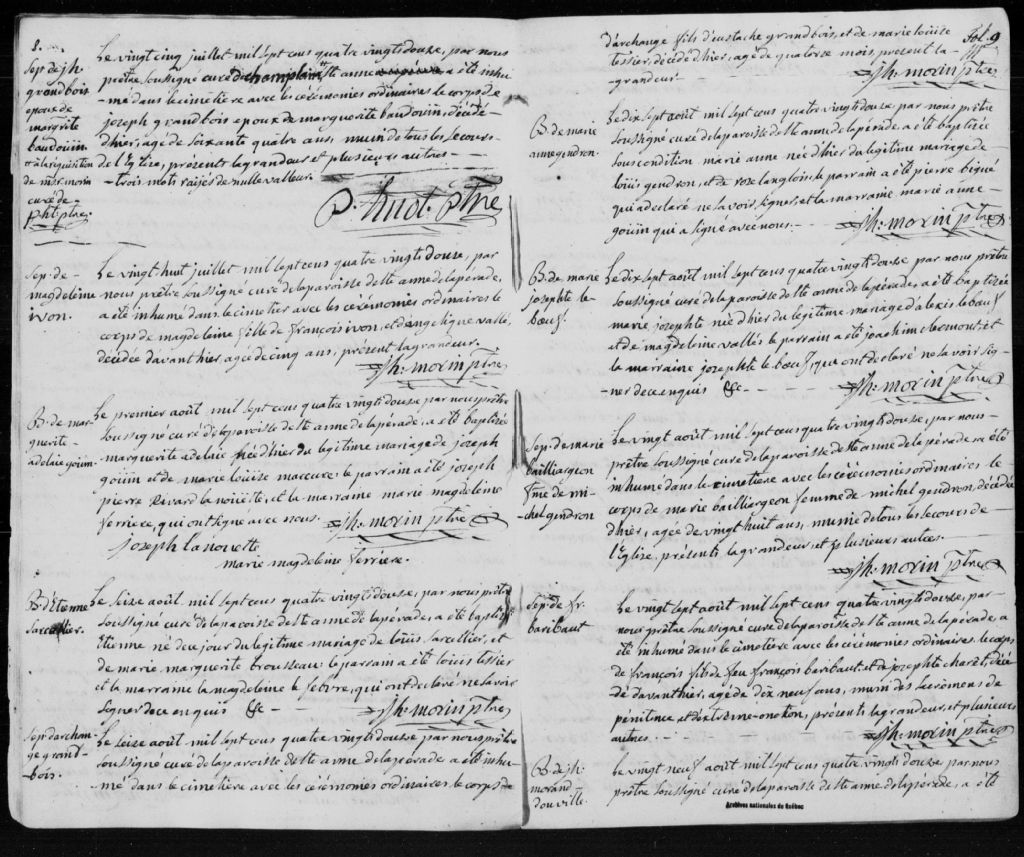 8.
Sep. de jh.
grandbois
epoux de
margrite
baudouin.
et à la réquisition
de mr. morin
curé de
P. ht. ptre.
Le vingt cinq juillet mil sept cens quatre vingts douze, par nous
prêtre soussigné curé de champlain ste anne a été inhu-
mé dans le cimetière avec les cérémonies ordinaires le corps de
joseph grandbois epoux de marguerite baudouin, décédé
d'hier, agé de soixante quatre ans, muni de tous les secours
de l'Église, présent lagrandeur et plusieurs autres
trois mots raijés de nulle valleur.
P. huot. ptre
Sep. de
magdeleine
ivon.
Le vingt huit juillet mil sept cens quatre vingts douze, par
nous prêtre soussigné curé de la paroisse de ste anne de la pérade,
a été inhumé dans le cimetier avec les cérémonies ordinaires le
corps de magdeleine fille de françois ivon, et d'angelique vallé,
décédée davant hier, agée de cinq ans, présent lagrandeur.
Jh: morin ptre
B. de mar-
guerite
adelaie gouin
Le premier août mil sept cens quatre vingts douze par nous prêtre
soussigné curé de la paroisse de ste anne de la pérade, a été baptisée
marguerite adelaie née d'hier du legitime mariage de joseph
gouin et de marie louise marcure. le parrain a été joseph
pierre Rivard la noüette, et la marraine marie magdeleine
ferriere, qui ont signé avec nous.
Jh: morin ptre
joseph lanouette
marie magdeleine ferriere.
B. d'Étienne
Sarcellier.
Le seize août mil sept cens quatre vingts douze, par nous prêtre
soussigné curé de la paroisse de ste anne de la pérade, a été baptisé
etienne né du jour du legitime mariage de loüis sarcellier, et
de marie marguerite brousseau le parrain a été loüis tessier
et la marraine la magdeleine le febvre, qui ont declaré ne savoir
signer de ce enquis &c
Jh: morin ptre
Sep. darchan-
ge grand-
bois.
Le seize août mil sept cens quatre vingts douze par nous prêtre
soussigné curé de la paroisse de ste anne de la perade a été inhu-
mé dans le cimetière avec les cérémonies ordinaires le corps de
fol. 9
d'archange fils d'eustache grandbois, et de marie loüise
tessier, décédé d'hier, agé de quatorse mois, présent la-
grandeur
Jh: morin ptre
B. de marie
anne gendron.
Le dix sept août mil sept cens quatre vingts douze par nous prêtre
soussigné curé de la paroisse de ste anne de la pérade, a été baptisée
sous condition marie anne née d'hier du legitime mariage de
loüis gendron, et de roze langlois, le parrain a été pierre bigué
qui a declaré ne savoir signer, et la marraine marie anne
gouin qui a signé avec nous.
Jh: morin ptre
B. de marie
josephte le
bœuf.
Le dix sept août mil sept cens quatre vingts douze par nous prêtre
soussigné curé de la paroisse de ste anne de la pérade, a été baptisée
marie josephte née d'hier du legitime mariage d'alexis le bœuf
et de magdeleine vallés le parrain a été joachim clermont, et
la marraine josephte le bœuf, qui ont declaré ne savoir sig-
ner de ce enquis &c
Jh: morin ptre
Sep. de marie
bailliargeon
fme de mi-
chel gendron
Le vingt août mil sept cens quatre vingts douze, par nous
prêtre soussigné curé de la paroisse de ste anne de la pérade a été
inhumé dans le cimetiere avec les cérémonies ordinaires le
corps de marie bailliargeon femme de michel gendron, décédée
d'hier, agée de vingt huit ans, munie de tous les secours de
l'Église, présents lagrandeur, et plusieurs autres.
Jh: morin ptre
Sep. de fr.
baribaut
Le vingt sept août mil sept cens quatre vingts douze, par
nous prêtre soussigné curé de la paroisse de ste anne de la perade, a
été inhumé dans le cimetière avec les cérémonies ordinaires le corps
de françois fils de feu françois baribaut, et de josephte charêts, décé-
dé davant hier, agé de dix neuf ans, muni des sacrémens de
pénitence et d'extrême-onction, présents lagrandeur, et plusieurs
autres.
Jh: morin ptre
B. de jh.
morand
douville.
Le vingt neuf août mil sept cens quatre vingts douze par nous
prêtre soussigné curé de la paroisse de ste anne de la pérade, a été
Archives nationales du Québec